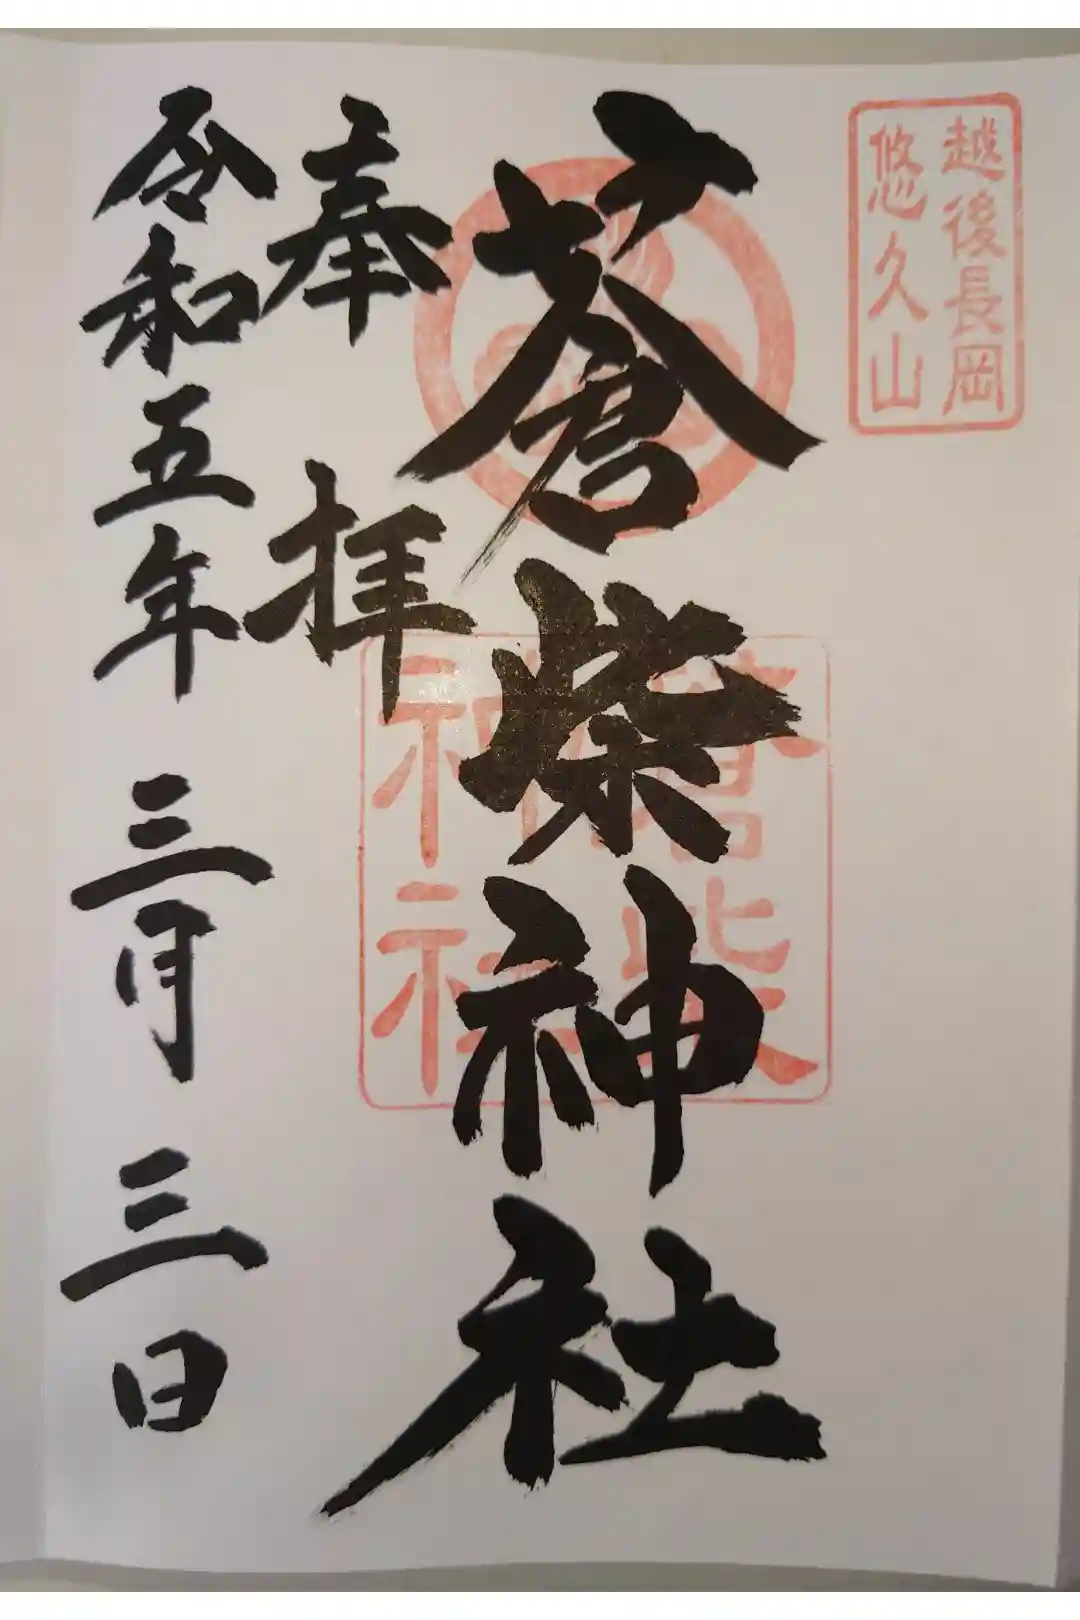 越後長岡
悠久山
蒼柴神社
蒼柴
神社
奉拝
令和五年 三月 三日